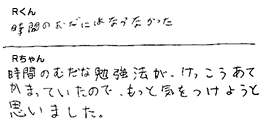 Rくん
時間のむだにはならなかった
Rちゃん
時間のむだな勉強法が、けっこうあて
かまっていたので、もっと気をつけようと
思いました。